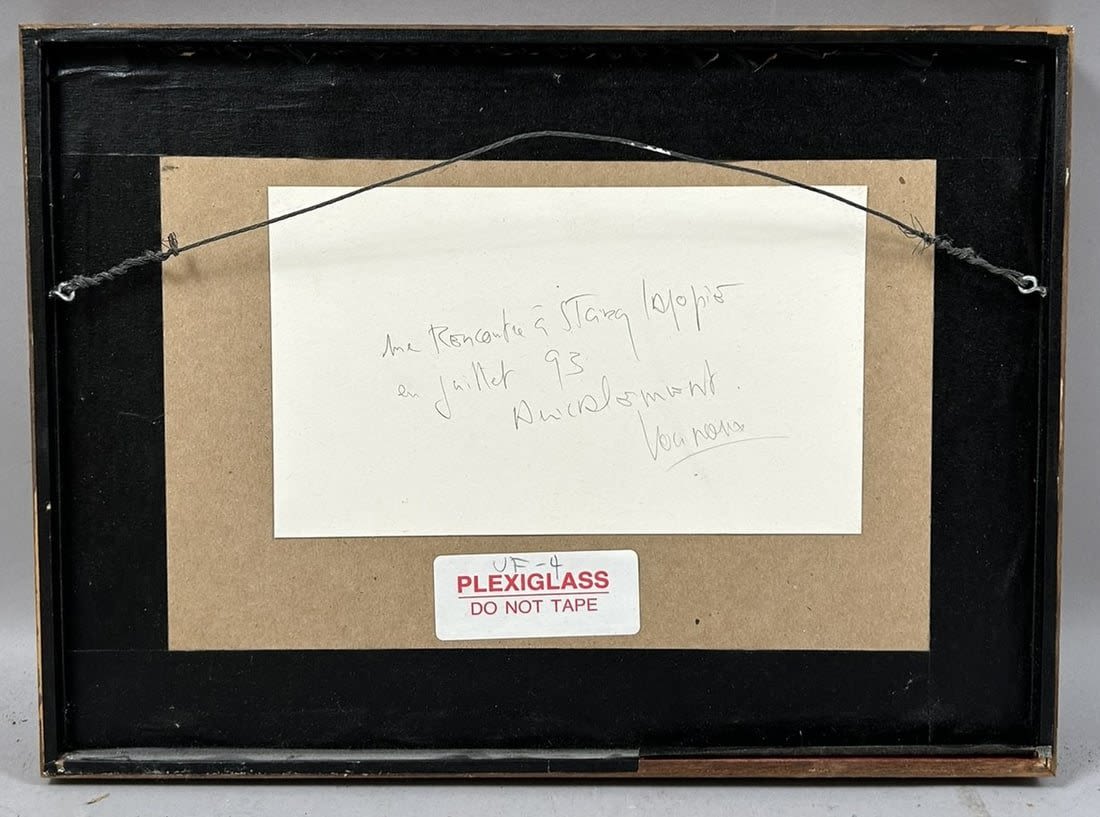 une Rencontre à St Cirq lapopie
en juillet 93
Amicalement.
UF-4
PLEXIGLASS
DO NOT TAPE